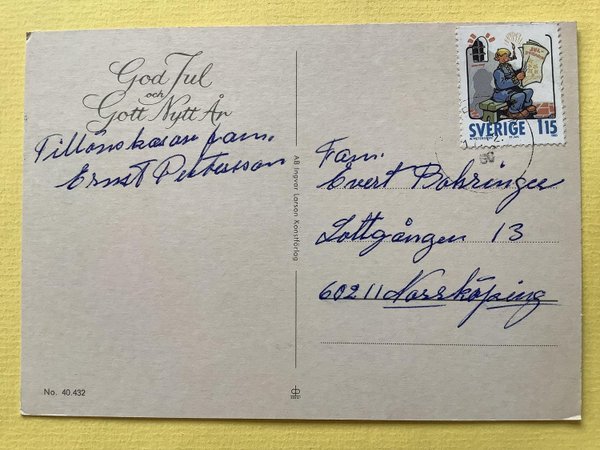 God Jul
och
Gott Nytt År
Tillönskas av fam.
Ernst Pettersson
AB Ingvar Larson Konstförlag
No. 40.432
SVERIGE 115
80
Fam.
Evert Bohringer
Lottgången 13
60211 Norrköping